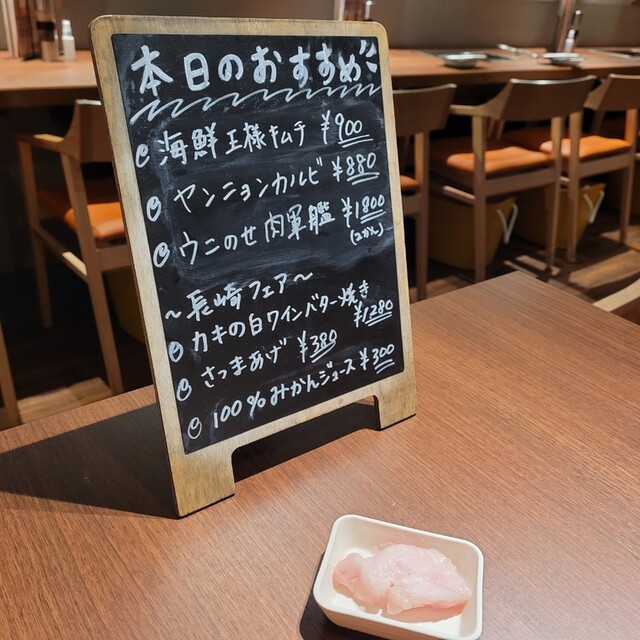 本日のおすすめ
海鮮王様キムチ ¥900
ヤンニョンカルビ ¥880
ウニのせ肉軍艦 ¥1800
(2かん)
〜長崎フェア〜
カキの白ワインバター焼き
¥1280
さつまあげ ¥380
100%みかんジュース ¥300